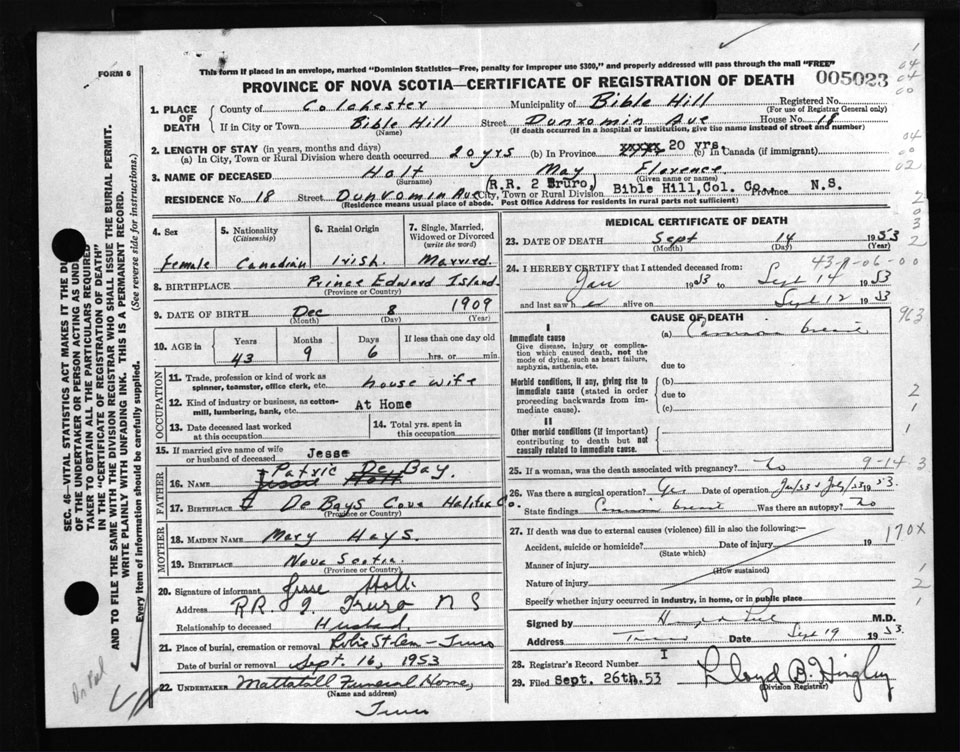 FORM 6
This form if placed in an envelope, marked "Dominion Statistics—Free, penalty for improper use $300," and properly addressed will pass through the mail "FREE"
PROVINCE OF NOVA SCOTIA—CERTIFICATE OF REGISTRATION OF DEATH
005023
1. PLACE OF DEATH County of Colchester Municipality of Bible Hill Registered No.
(For use of Registrar General only)
If in City or Town Bible Hill Street Dunromin Ave House No. 18
(Name) (If death occurred in a hospital or institution, give the name instead of street and number)
2. LENGTH OF STAY (in years, months and days)
(a) In City, Town or Rural Division where death occurred 20 yrs (b) In Province 20 yrs. (c) In Canada (if immigrant)
3. NAME OF DECEASED Holt May Florence
(Surname) (Given name or names)
RESIDENCE No. 18 Street Dunromin Ave City, Town or Rural Division (R.R. 2 Truro,) Bible Hill, Col. Co., Province N.S.
(Residence means usual place of abode. Post Office Address for residents in rural parts not sufficient)
4. Sex Female
5. Nationality (Citizenship) Canadian
6. Racial Origin Irish
7. Single, Married, Widowed or Divorced (write the word) Married.
8. BIRTHPLACE Prince Edward Island
(Province or Country)
9. DATE OF BIRTH Dec 8 1909
(Month) (Day) (Year)
10. AGE in Years Months Days If less than one day old
43 9 6 hrs. or min.
OCCUPATION
11. Trade, profession or kind of work as spinner, teamster, office clerk, etc. house wife
12. Kind of industry or business, as cotton-mill, lumbering, bank, etc. At Home
13. Date deceased last worked at this occupation
14. Total yrs. spent in this occupation
15. If married give name of wife or husband of deceased Jesse
FATHER
16. NAME Patric De Bay.
Jessie Holt
17. BIRTHPLACE De Bays Cove Halifax Co.
(Province or Country)
MOTHER
18. MAIDEN NAME Mary Hays.
19. BIRTHPLACE Nova Scotia
(Province or Country)
20. Signature of informant Jesse Holt
Address R.R. 2, Truro N S
Relationship to deceased Husband
21. Place of burial, cremation or removal Robie St Cem - Truro
Date of burial or removal Sept. 16, 1953
22. UNDERTAKER Mattatall Funeral Home,
(Name and address)
Truro
MEDICAL CERTIFICATE OF DEATH
23. DATE OF DEATH Sept 14 1953
(Month) (Day) (Year)
43-9-06-00
24. I HEREBY CERTIFY that I attended deceased from:
Jan 1953 to Sept 14 1953
and last saw her alive on Sept 12 1953
CAUSE OF DEATH
I
Immediate cause (a) Carcinoma breast
Give disease, injury or complication which caused death, not the mode of dying, such as heart failure, asphyxia, asthenia, etc.
due to
Morbid conditions, if any, giving rise to immediate cause (stated in order proceeding backwards from immediate cause).
(b)
due to
(c)
II
Other morbid conditions (if important) contributing to death but not causally related to immediate cause.
25. If a woman, was the death associated with pregnancy? No 9-14 3
26. Was there a surgical operation? Yes Date of operation Jan/53 & July/53 1953.
State findings Carcinoma breast Was there an autopsy? No
27. If death was due to external causes (violence) fill in also the following:—
Accident, suicide or homicide? Date of injury 19
(State which)
170X
Manner of injury
(How sustained)
Nature of injury
Specify whether injury occurred in industry, in home, or in public place
Signed by M.D.
Address Truro Date Sept 19 1953.
28. Registrar's Record Number I
29. Filed Sept. 26th. 53 Lloyd B. Hingley
(Division Registrar)
SEC. 46—VITAL STATISTICS ACT MAKES IT THE DU
OF THE UNDERTAKER OR PERSON ACTING AS UND
TAKER TO OBTAIN ALL THE PARTICULARS REQUIRED
IN THE "CERTIFICATE OF REGISTRATION OF DEATH"
AND TO FILE THE SAME WITH THE DIVISION REGISTRAR WHO SHALL ISSUE THE BURIAL PERMIT.
WRITE PLAINLY WITH UNFADING INK. THIS IS A PERMANENT RECORD.
Every item of information should be carefully supplied. (See reverse side for instructions.)
963